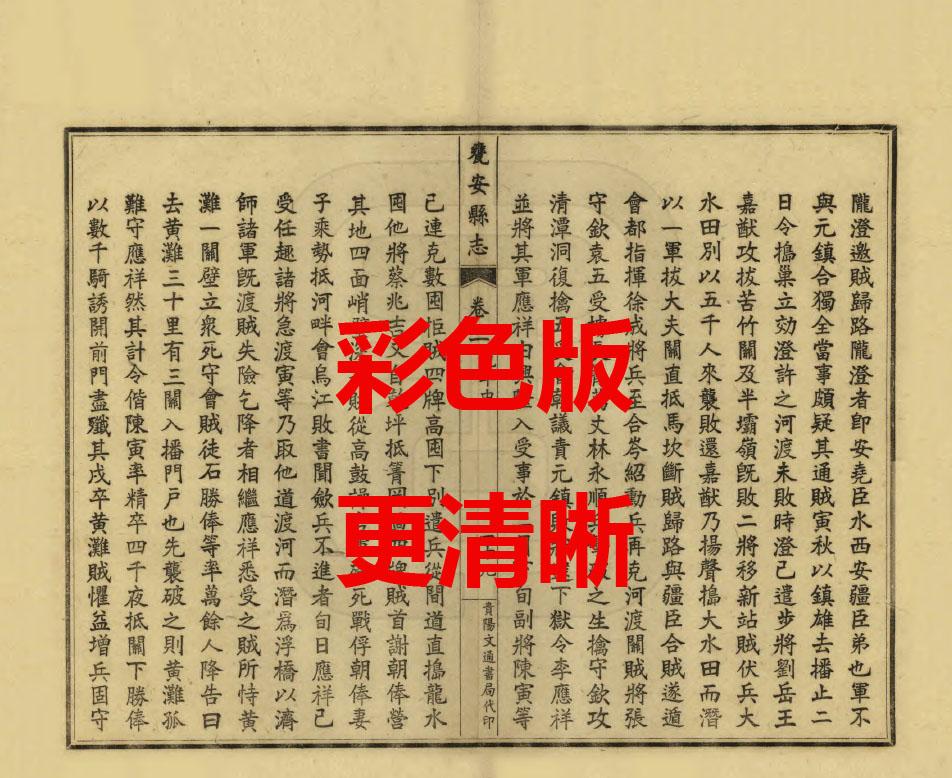 隴澄邀賊歸路隴澄者卽安堯臣水西安疆臣弟也軍不
與元鎮合獨全當事頗疑其通賊寅秋以鎮雄去播止二
日令搗巢立効澄許之河渡未敗時澄已遣步將劉岳王
嘉猷攻拔苦竹關及半壩嶺旣敗二將移新站賊伏兵大
水田別以五千人來襲敗還嘉猷乃揚聲搗大水田而潛
以一軍拔大夫關直抵馬坎斷賊歸路與疆臣合賊遂遁
會都指揮徐成將兵至合岑紹勳兵再克河渡關賊將張
守欽袁五受林永順之生擒守欽攻
清潭洞復擒議責元鎮下獄令李應祥
並將其軍應祥入受事於旬副將陳寅等
甕安縣志
卷
貴陽文通書局代印
已連克數囤佢賊四牌高囤下別遣兵從間道直搗龍水
囤他將蔡兆吉又自坪抵箐賊首謝朝俸營
其地四面峭賊從高鼓死戰俘朝俸妻
子乘勢抵河畔會烏江敗書聞歛兵不進者旬日應祥已
受任趣諸將急渡寅等乃取他道渡河而潛爲浮橋以濟
師諸軍旣渡賊失險乞降者相繼應祥悉受之賊所恃黄
灘一關壁立衆死守會賊徒石勝俸等率萬餘人降告曰
去黄灘三十里有三關入播門戶也先襲破之則黄灘孤
難守應祥然其計令偕陳寅率精卒四千夜抵關下勝俸
以數千騎誘開前門盡殲其戍卒黄灘賊懼益增兵固守
彩色版
更清晰